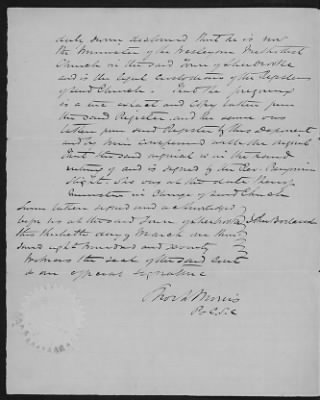 duly sworn declared that he is now
the Minister of the Wesleyan Methodist
Church in the said Town of Sherbrooke
and is the legal custodian of the Registers
of said Church. That the foregoing
is a true exact and Copy taken from
the said Register, and the same was
taken from said Register by this Deponent
and by him compared with the original
that the said original is in the hand
writing of and is signed by the Rev. Benjamin
Slight. Who was at the date thereof
Minister in charge of said Church
Sworn taken signed and acknowledged
before us at the said Town of Sherbrooke John Borland
this thirtieth day of March one thousand
eight hundred and seventy
Witness the seal of the said Court
& our official signature
Short & Morris
P. C. S. C.